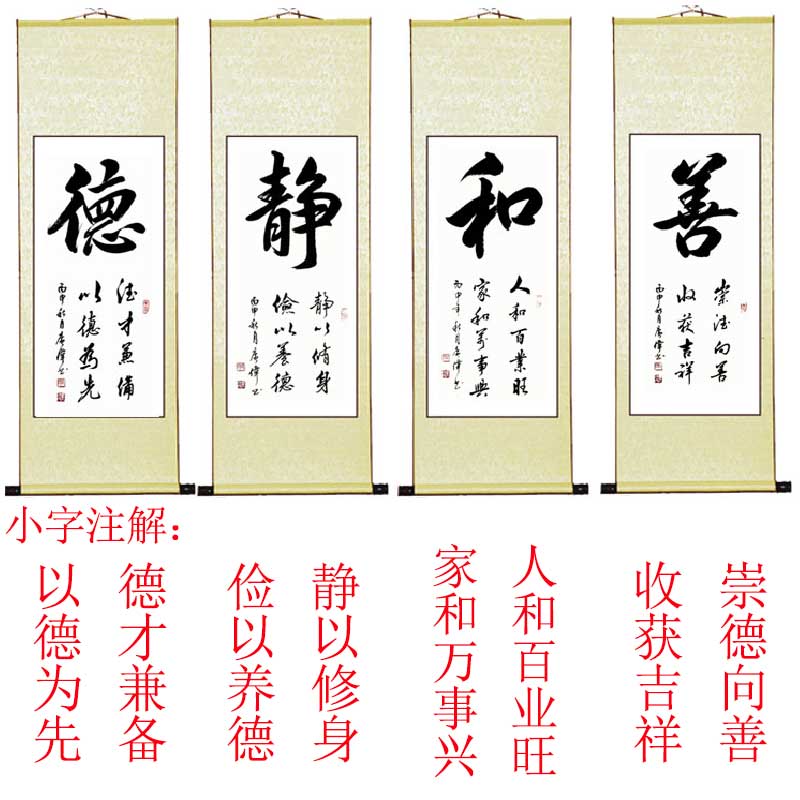 德
德才兼備
以德為先
丙申秋月
静
静以脩身
儉以養德
丙申秋月
和
人和百業旺
家和萬事興
丙申年秋月
善
崇德向善
收获吉祥
丙申秋月
小字注解：
德才兼备
以德为先
静以修身
俭以养德
人和百业旺
家和万事兴
崇德向善
收获吉祥